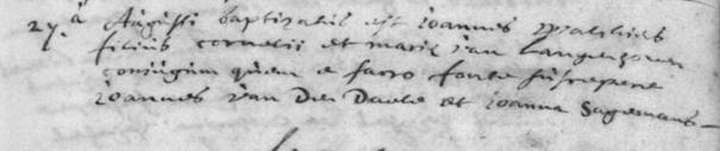 27.a Augusti baptizatus est ioannes
filius cornelii et mariæ van Langen
coniugum quem e sacro fonte suscepere
ioannes van den et ioanna Sagemans